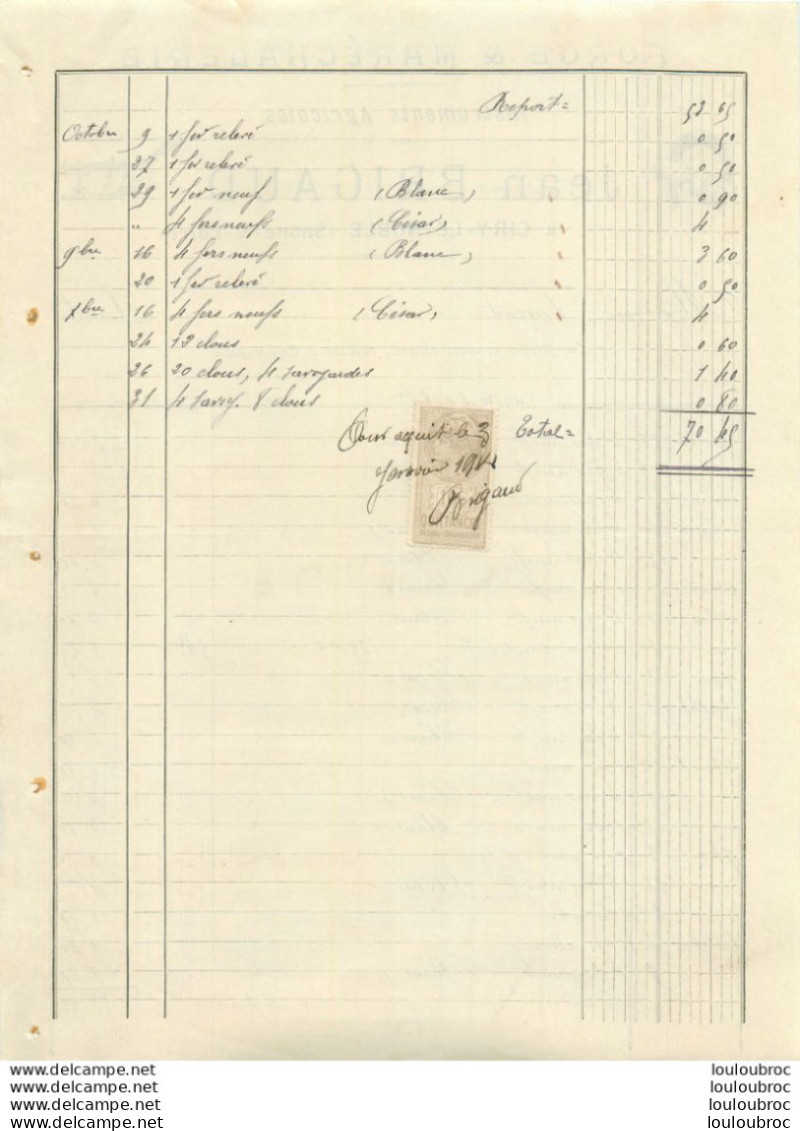 Report = 53 65
Octobre 9 1 fer relevé 0 50
27 1 fer relevé 0 50
29 1 fer neuf (Blanc) 0 90
" 4 fers neufs (César) 4
9bre 16 4 fers neufs (Blanc) 3 60
20 1 fer relevé 0 50
Xbre 16 4 fers neufs (César) 4
24 12 clous 0 60
26 20 clous, 4 savoyardes 1 40
31 4 savoy. 8 clous 0 80
Pour aquit le 3 Total = 70 45
Janvier
Brigaud
www.delcampe.net
www.delcampe.net
www.delcampe.net
www.delcampe.net
louloubroc
louloubroc
louloubroc
louloubroc